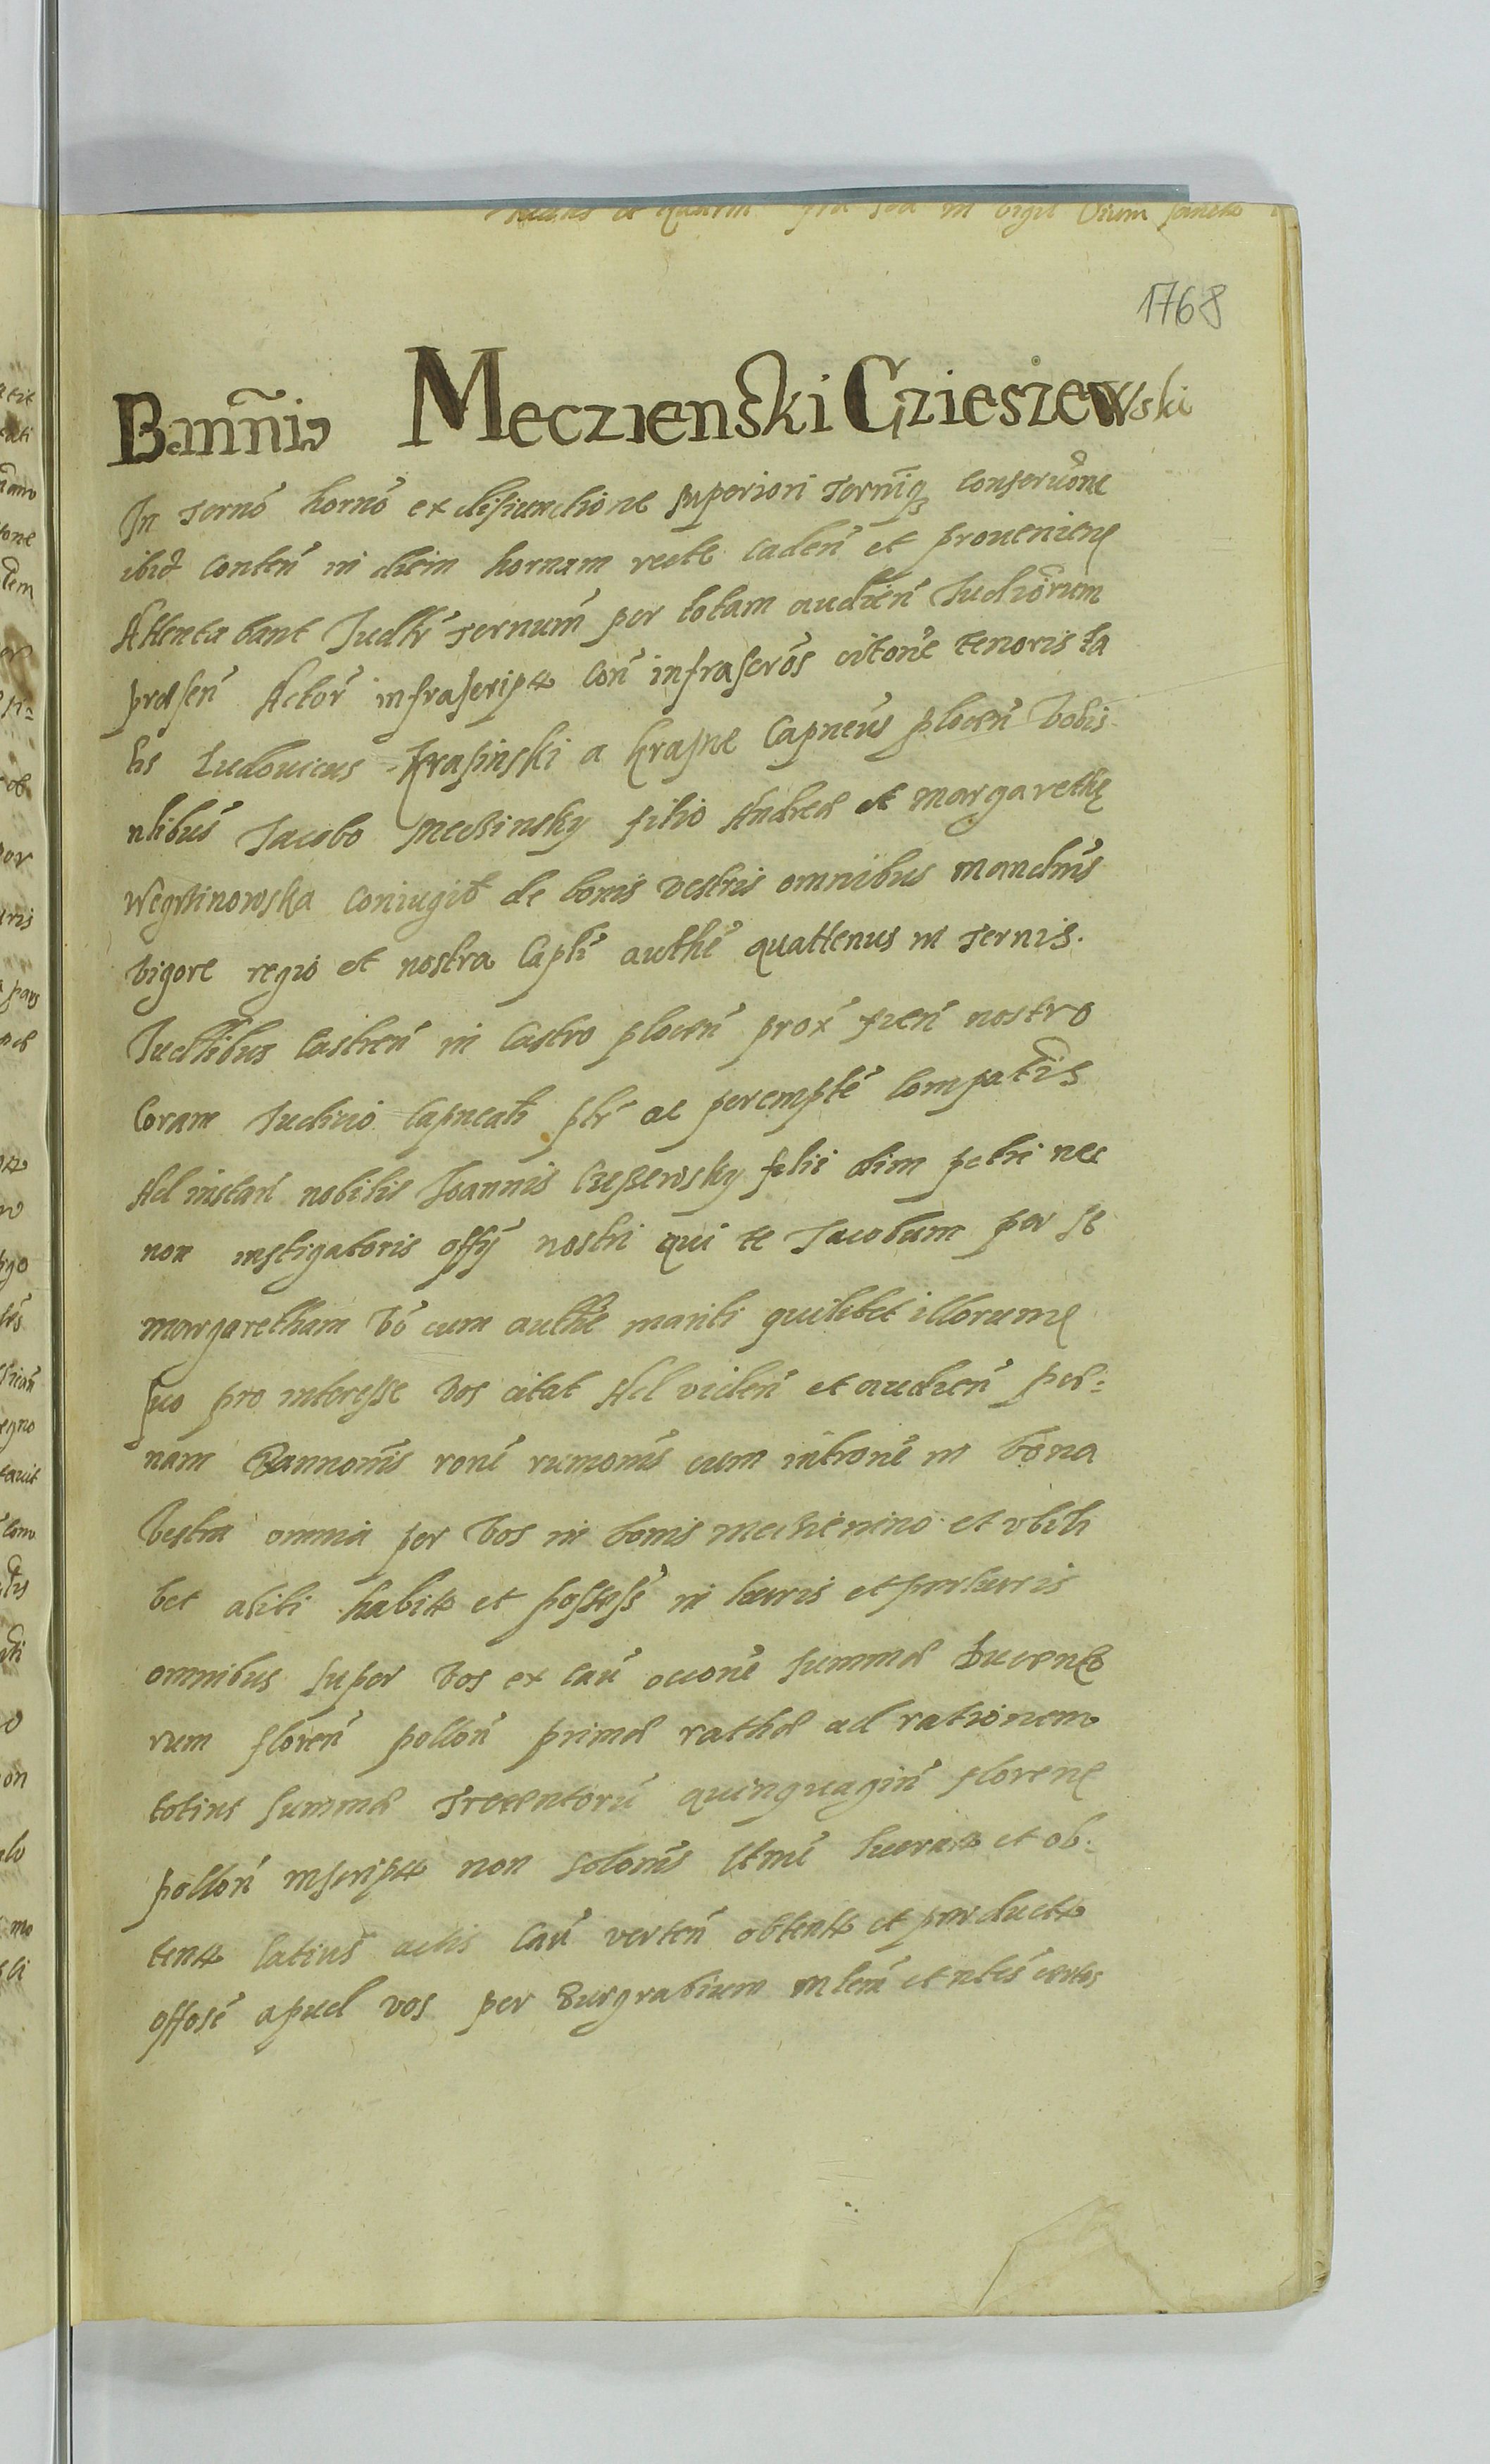 in vigil
1768
Bannis Meczienski Czieszewski
In Termō hornō ex disiunctione superiori Terminq conservōne
ibid conten̄ in diem hornam recte caden̄ et provenien
Attentabant Judtr̄ Ternum̄ per totam audien̄ Judiorum
præsen̄ Actor̄ infrascript con̄ infrascrōs citōne tenoris ta
lis Ludovicus Krasinski a Krasne Capneus plocen̄ Vobis
nlibus Jacobo Mecssinsky filio Andreæ et Margarethę
Węgrzinowska coniugib de bonis vestris omnibus mandm̄s
vigore regio et nostra Capli authē quattenus in Ternis.
Judllibus Castren̄ in Castro plocen̄ prox̄ fien̄ nostro
Coram Judicio Capneali ptr̄ ac peremptē compatis
Ad instan̄ nobilis Joannis Czessewsky filii olim petri nec
non instigatoris offÿ nostri qui te Jacobum per se
margaretham Vō cum authē mariti quilibet illorum
suo pro interesse Vos citat Ad viden̄ et audien̄ pœ=
nam Bannonīs ronē rumonīs cum intronē in bona
Vestra omnia per Vos in bonis meczienino et ubili
bet alibi habit et possess in lucris et parlucris
omnibus super Vos ex cau ocionē summæ Ducento
rum floren̄ pollon̄ primæ rathæ ad rationem
totius summæ Trecentorū quinquagin̄ floren
pollon̄ inscript non solonīs stnē lucrat et ob
tent latius actis cau verten̄ obtent et parduct
offosē apud vos per Burgrabium mlem̄ et nlēs certos